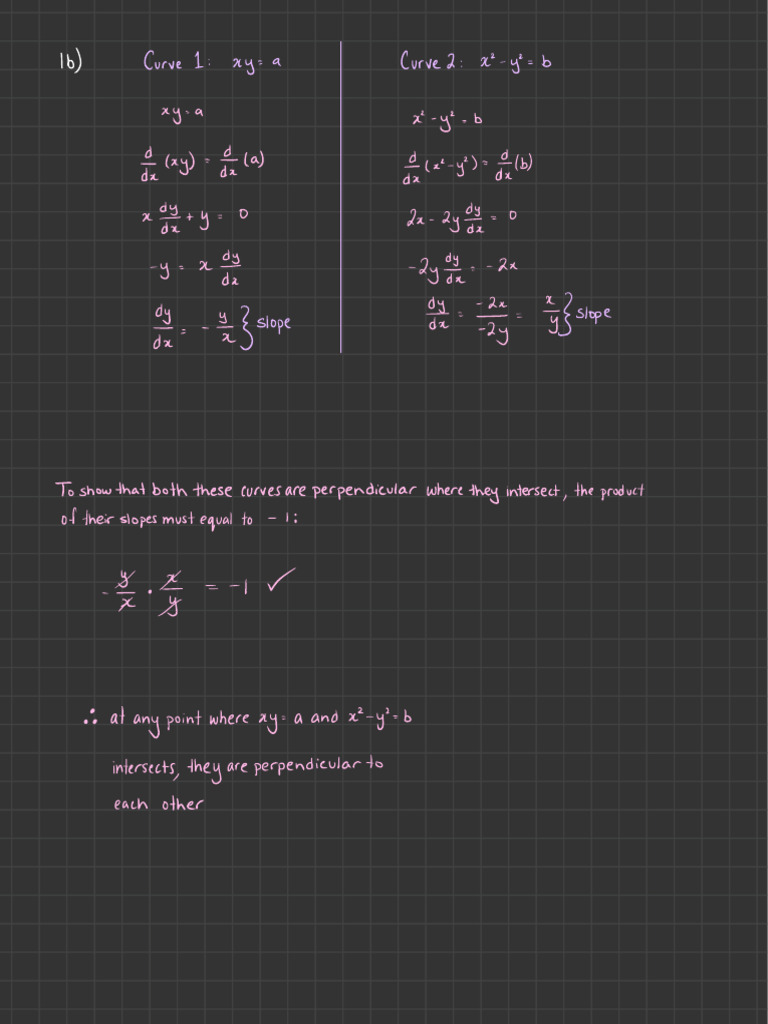 1b)
Curve 1: xy = a
xy = a
d/dx (xy) = d/dx (a)
x dy/dx + y = 0
-y = x dy/dx
dy/dx = - y/x } slope
Curve 2: x² - y² = b
x² - y² = b
d/dx (x² - y²) = d/dx (b)
2x - 2y dy/dx = 0
-2y dy/dx = -2x
dy/dx = -2x/-2y = x/y } slope
To show that both these curves are perpendicular where they intersect, the product
of their slopes must equal to -1:
- y/x · x/y = -1 ✓
∴ at any point where xy = a and x² - y² = b
intersects, they are perpendicular to
each other